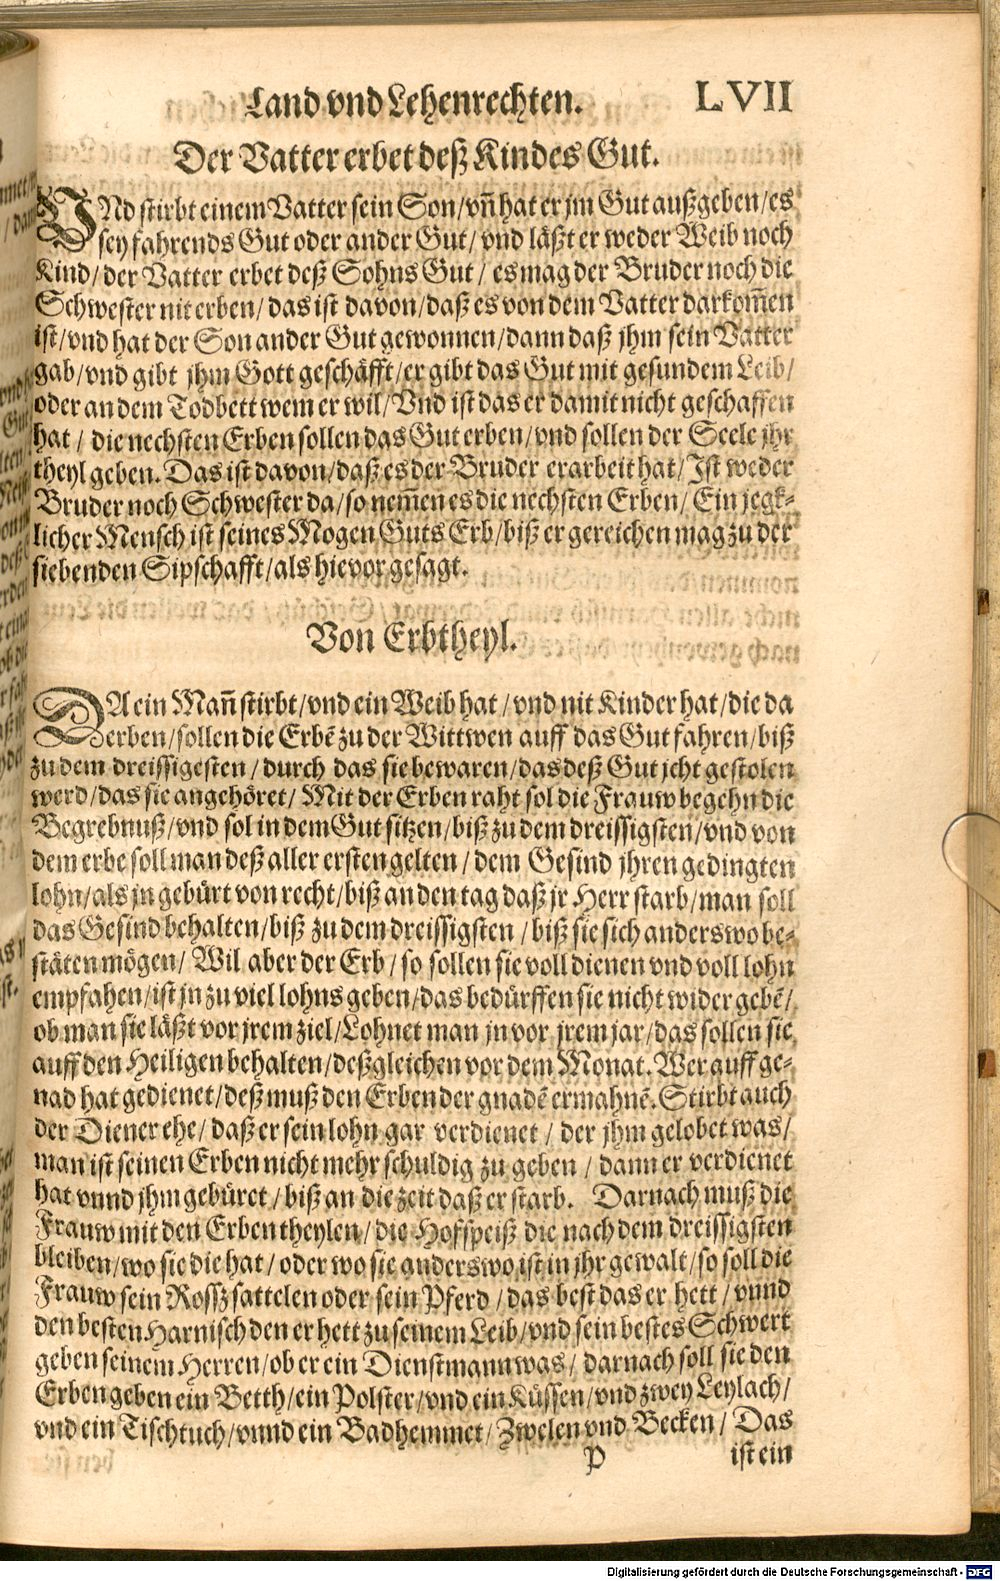 Land vnd Lehenrechten. LVII
Der Vatter erbet deß Kindes Gut.
VNd stirbt einem Vatter sein Son/vñ hat er jm Gut außgeben/es
sey fahrends Gut oder ander Gut/vnd läßt er weder Weib noch
Kind/der Vatter erbet deß Sohns Gut/es mag der Bruder noch die
Schwester nit erben/das ist davon/daß es von dem Vatter darkom̃en
ist/vnd hat der Son ander Gut gewonnen/dann daß jhm sein Vatter
gab/vnd gibt jhm Gott geschäfft/er gibt das Gut mit gesundem Leib/
oder an dem Todbett wem er wil/Vnd ist das er damit nicht geschaffen
hat/die nechsten Erben sollen das Gut erben/vnd sollen der Seele jhr
theyl geben. Das ist davon/daß es der Bruder erarbeit hat/Ist weder
Bruder noch Schwester da/so nem̃en es die nechsten Erben/Ein jegk-
licher Mensch ist seines Mogen Guts Erb/biß er gereichen mag zu der
siebenden Sipschafft/als hievor gesagt.
Von Erbtheyl.
DA ein Mañ stirbt/vnd ein Weib hat/vnd nit Kinder hat/die da
erben/sollen die Erbẽ zu der Wittwen auff das Gut fahren/biß
zu dem dreissigesten/durch das sie bewaren/das deß Gut jcht gestolen
werd/das sie angehöret/Mit der Erben raht sol die Frauw begehn die
Begrebnuß/vnd sol in dem Gut sitzen/biß zu dem dreissigsten/vnd von
dem erbe soll man deß aller ersten gelten/dem Gesind jhren gedingten
lohn/als jn gebürt von recht/biß an den tag daß jr Herr starb/man soll
das Gesind behalten/biß zu dem dreissigsten/biß sie sich anderswo be-
stäten mögen/Wil aber der Erb/so sollen sie voll dienen vnd voll lohn
empfahen/ist jn zu viel lohns geben/das bedürffen sie nicht wider gebẽ/
ob man sie läßt vor jrem ziel/Lohnet man jn vor jrem jar/das sollen sie
auff den Heiligen behalten/deßgleichen vor dem Monat. Wer auff ge-
nad hat gedienet/deß muß den Erben der gnadẽ ermahnẽ. Stirbt auch
der Diener ehe/daß er sein lohn gar verdienet/der jhm gelobet was/
man ist seinen Erben nicht mehr schuldig zu geben/dann er verdienet
hat vnnd jhm gebüret/biß an die zeit daß er starb. Darnach muß die
Frauw mit den Erben theylen/die Hofspeiß die nach dem dreissigsten
bleiben/wo sie die hat/oder wo sie anderswo ist in jhr gewalt/so soll die
Frauw sein Rossz sattelen oder sein Pferd/das best das er hett/vnnd
den besten Harnisch den er hett zu seinem Leib/vnd sein bestes Schwert
geben seinem Herren/ob er ein Dienstmann was/darnach soll sie den
Erben geben ein Betth/ein Polster/vnd ein Küssen/vnd zwey Leylach/
vnd ein Tischtuch/vnnd ein Badhemmet/Zwelen vnd Becken/Das
P ist ein
Digitalisierung gefördert durch die Deutsche Forschungsgemeinschaft - DFG